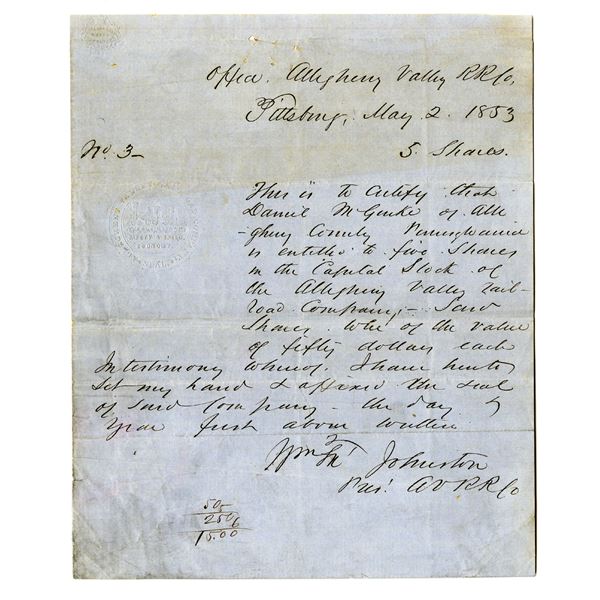 Office. Allegheny Valley RRCo,
Pittsburg, May 2. 1853
No 3- 5 Shares.
This is to Certify that
Daniel McGuike of Alle
-gheny County Pennsylvania
is entitled to five Shares
in the Capital Stock of
the Allegheny Valley rail-
road Company; - Said
Shares of the value
of fifty dollars each
In testimony whereof I have hereto
Set my hand & affixed the seal
of Said Company - the day &
Year first above written
Wm F Johnston
Pres! A V R R Co
50
250
15.00